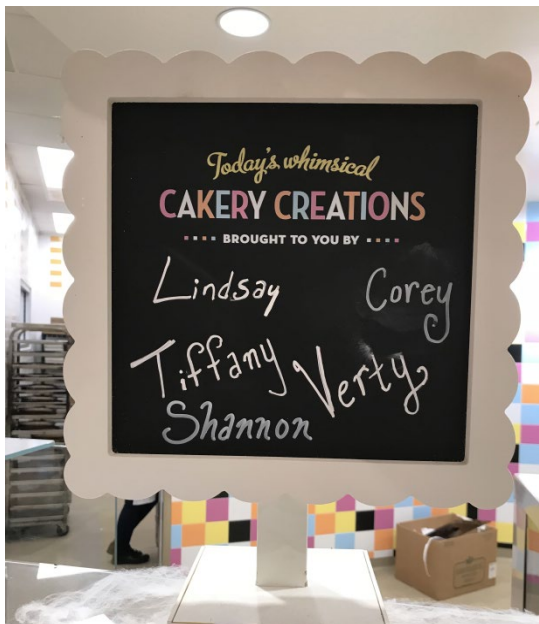 Today's whimsical
CAKERY CREATIONS
BROUGHT TO YOU BY
Lindsay Corey
Tiffany Verty
Shannon